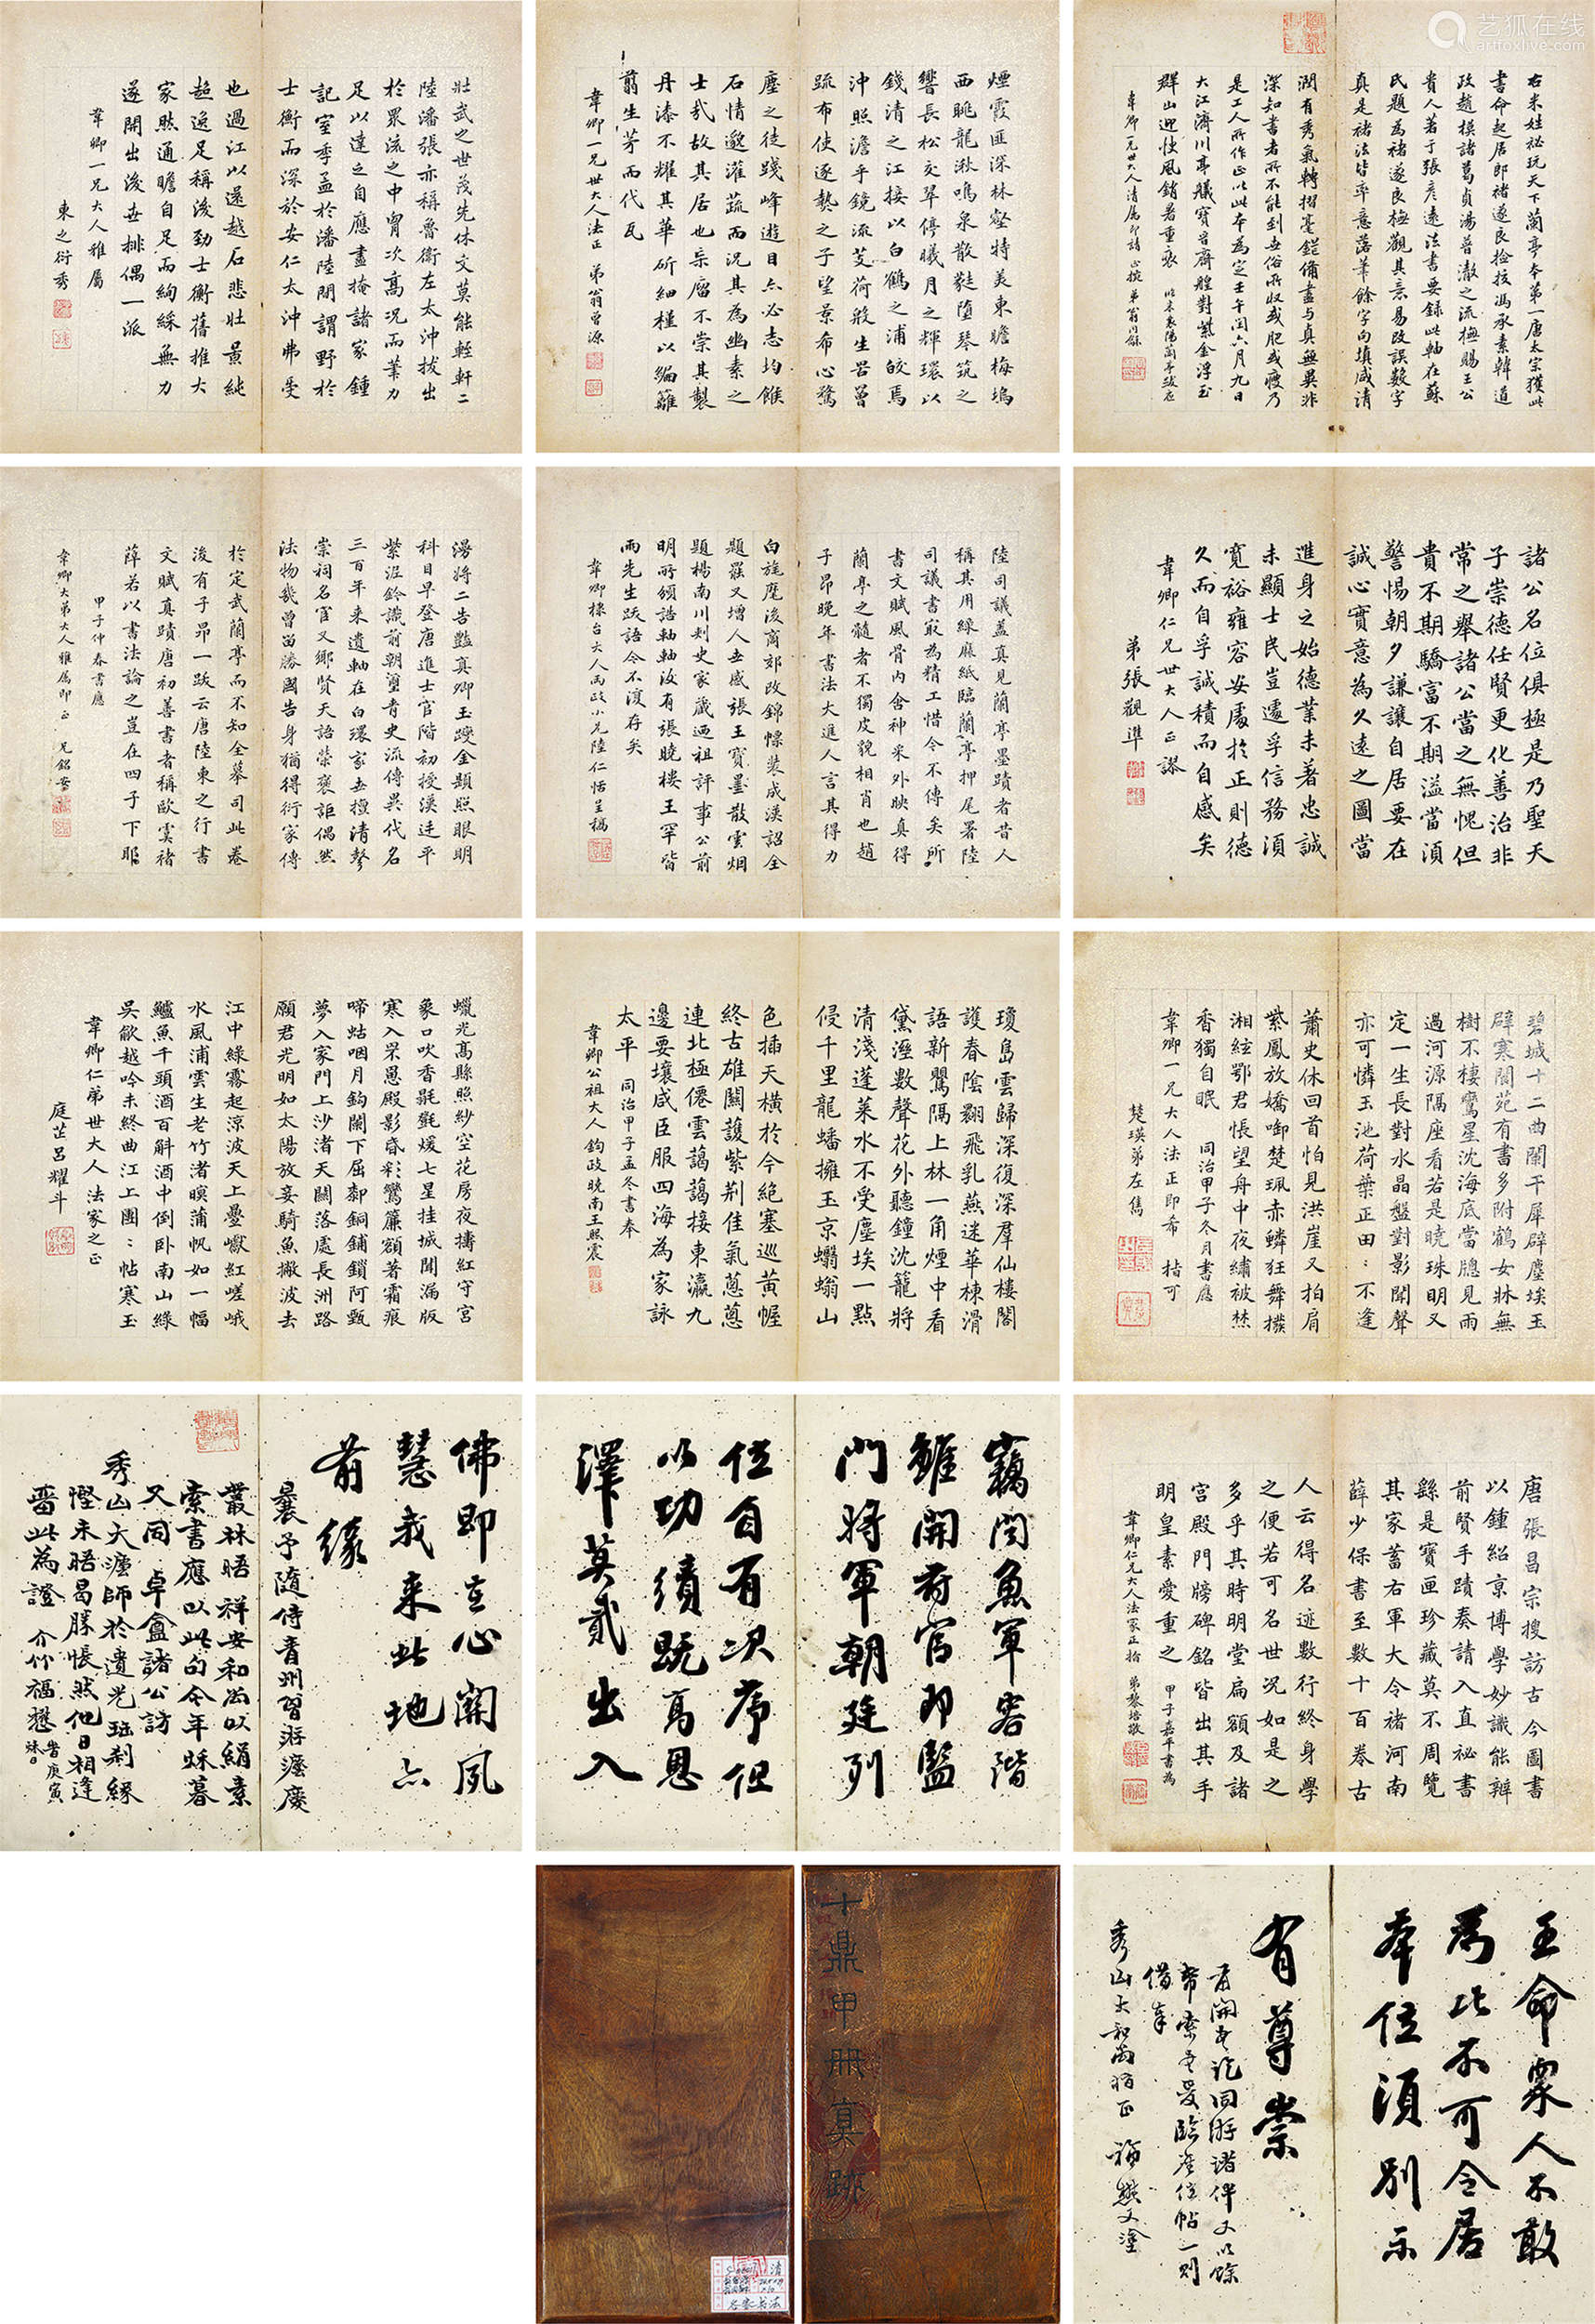 艺狐在线
artfoxlive.com
右米姓祕玩天下蘭亭本第一唐太宗獲此
書命起居郎褚遂良檢校馮承素韓道
政趙模諸葛貞湯普澈之流模賜王公
貴人著于張彥遠法書要錄此軸在蘇
氏題為褚遂良橅觀其意易改誤數字
真是褚法皆率意落筆餘字向填咸清
潤有秀氣轉摺毫鋩備盡与真無異非
深知書者所不能到世俗所收或肥或瘦乃
是工人所作正以此本為定壬午閏六月九日
大江濟川亭艤寶晉齋艎對紫金浮玉
群山迎快風銷暑重裝
煙霞匪深林壑特美東瞻梅塢
西眺龍湫鳴泉散鞋墮琴筑之
響長松交翠停曦月之輝環以
錢清之江接以白鶴之浦皎焉
沖照澹乎鏡流芰荷般生罟罾
疏布使逐熱之子望景希心驚
塵之徒踐峰遊目亦必志均餱
石情邈灌蔬而況其為幽素之
士哉故其居也宗廇不崇其製
丹漆不耀其華斫細槿以編籬
翦生茅而代瓦
韋卿一兄世大人法正 弟翁曾源
壯武之世茂先休文莫能輕軒二
陸潘張亦稱魯衛左太沖拔出
於眾流之中胷次高况而筆力
足以達之自應盡掩諸家鍾
記室季孟於潘陸閒謂野於
士衡而深於安仁太沖弗受
也過江以還越石悲壯景純
超逸足稱後勁士衡舊推大
家然通瞻自足而絢綵無力
遂開出後世排偶一派
韋卿一兄大人雅屬
東之衍秀
諸公名位俱極是乃聖天
子崇德任賢更化善治非
常之舉諸公當之無愧但
貴不期驕富不期溢當須
警惕朝夕謙讓自居要在
誠心實意為久遠之圖當
進身之始德業未著忠誠
未顯士民豈遽孚信務須
寬裕雍容安處於正則德
久而自孚誠積而自感矣
韋卿仁兄世大人正謬
弟張觀準
陸司議蓋真見蘭亭墨蹟者昔人
稱其用綠麻紙臨蘭亭押尾署陸
司議書最為精工惜今不傳矣所
書文賦風骨內含神采外映真得
蘭亭之髓者不獨皮貌相肖也趙
子昂晚年書法大進人言其得力
白旄麾後齋郊改錦幖裝成漢詔全
題羅又增人世感張王寶墨散雲烟
題楊南川刺史家藏迺祖評事公前
明所頒誥軸軸後有張曉樓王罕皆
兩先生跋語今不復存矣
韋卿棣台大人両政小兄陸仁恬呈稿
漫將二告豔真卿玉躞金題照眼明
科目早登唐進士官階初授漢廷平
紫泥鈐識前朝璽青史流傳異代名
三百年来遺軸在白環家世檀清聲
崇祠名宦又鄉賢天語榮褒詎偶然
法物幾曾留勝國告身猶得衍家傳
於定武蘭亭而不知全摹司此卷
後有子昂一跋云唐陸柬之行書
文賦真蹟唐初善書者稱歐虞褚
薛若以書法論之豈在四子下耶
甲子仲春書應
韋卿大弟大人雅属即正 兄銘安
碧城十二曲闌干犀辟塵埃玉
辟寒閬苑有書多附鶴女牀無
樹不棲鸞星沈海底當牕見雨
過河源隔座看若是曉珠明又
定一生長對水晶盤對影聞聲
亦可憐玉池荷葉正田〻不逢
蕭史休回首怕見洪崖又拍肩
紫鳳放嬌啣楚珮赤鱗狂舞撥
湘絃鄂君悵望舟中夜繡被焚
香獨自眠 同治甲子冬月書應
韋卿一兄大人法正即希 桔可
楚瑛弟左雋
瓊島雲歸深復深羣仙樓閣
護春陰翻飛乳燕迷華棟滑
語新鸎隔上林一角煙中看
黛溼數聲花外聽鐘沈籠將
清淺蓬萊水不受塵埃一點
侵千里龍蟠擁玉京蠮螉山
色插天橫於今絶塞巡黃幄
終古雄關護紫荆佳氣蔥蔥
連北極僊雲藹藹接東瀛九
邊要壤咸臣服四海為家詠
太平 同治甲子孟冬書奉
韋卿公祖大人鈞政晚南王熙震
蠟光高縣照紗空花房夜擣紅守宮
象口吹香毾㲪煖七星挂城聞漏版
寒入罘罳殿影昏彩鸞簾額著霜痕
啼蛄咽月鈎闌下屈郗銅鋪鎖阿甄
夢入家門上沙渚天關落處長洲路
願君光明如太陽放妾騎魚撇波去
江中綠霧起涼波天上疊巘紅嵯峨
水風浦雲生老竹渚暝蒲帆如一幅
鱸魚千頭酒百斛酒中倒卧南山綠
吳歈越吟未終曲江上團〻帖寒玉
韋卿仁弟世大人法家之正
庭芷呂耀斗
唐張昌宗搜訪古今圖書
以鍾紹京博學妙識能辨
前賢手蹟奏請入直祕書
繇是寶匣珍藏莫不周覽
其家蓄右軍大令褚河南
薛少保書至數十百卷古
人云得名迹數行終身學
之便若可名世况如是之
多乎其時明堂扁額及諸
宮殿門牓碑銘皆出其手
明皇素愛重之 甲子嘉平書為
韋卿仁兄大人法家正拾 弟黎培敬
竊聞魚軍容階
雖開府官即監
門將軍朝廷列
位自有次序但
以功績既高恩
澤莫貳出入
佛即在心闌夙
慧我来此地亦
前緣
曩予隨侍青州習游瀍慶
叢林晤祥安和尚以絹素
索書應以此句今年秋暮
又同卓盦諸公訪
秀山大瀍師於遺光珤刹緣
慳未晤曷勝悵然他日相逢
畱此為證 介竹福懋 時庚寅
秌日
王命眾人不敢
為比不可令居
本位須別示
有尊崇
秀山大和尚指正 福懋又塗
十鼎甲冊真跡
清
名家書法